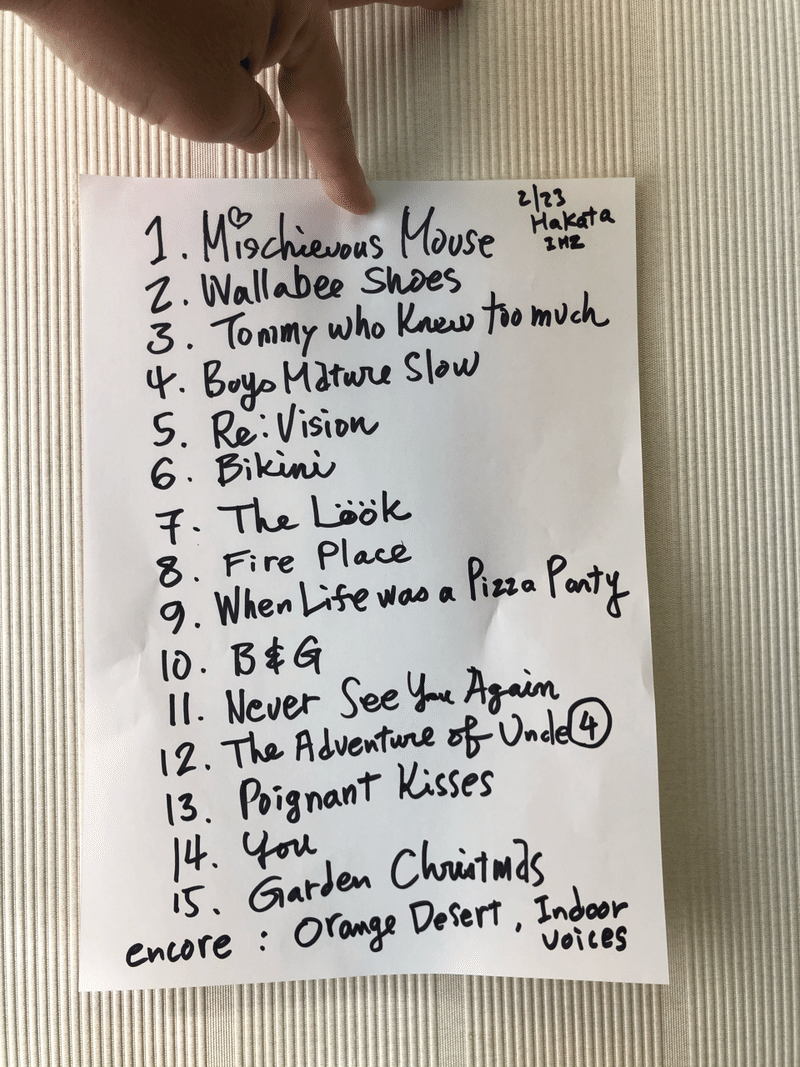 2/23
Hakata
INZ
1. Mischievous Mouse
2. Wallabee Shoes
3. Tommy who knew too much
4. Boys Mature Slow
5. Re:Vision
6. Bikini
7. The Lööк
8. Fire Place
9. When Life was a Pizza Party
10. B & G
11. Never See You Again
12. The Adventure of Uncle ④
13. Poignant Kisses
14. You
15. Garden Christmas
encore : Orange Desert, Indoor
voices